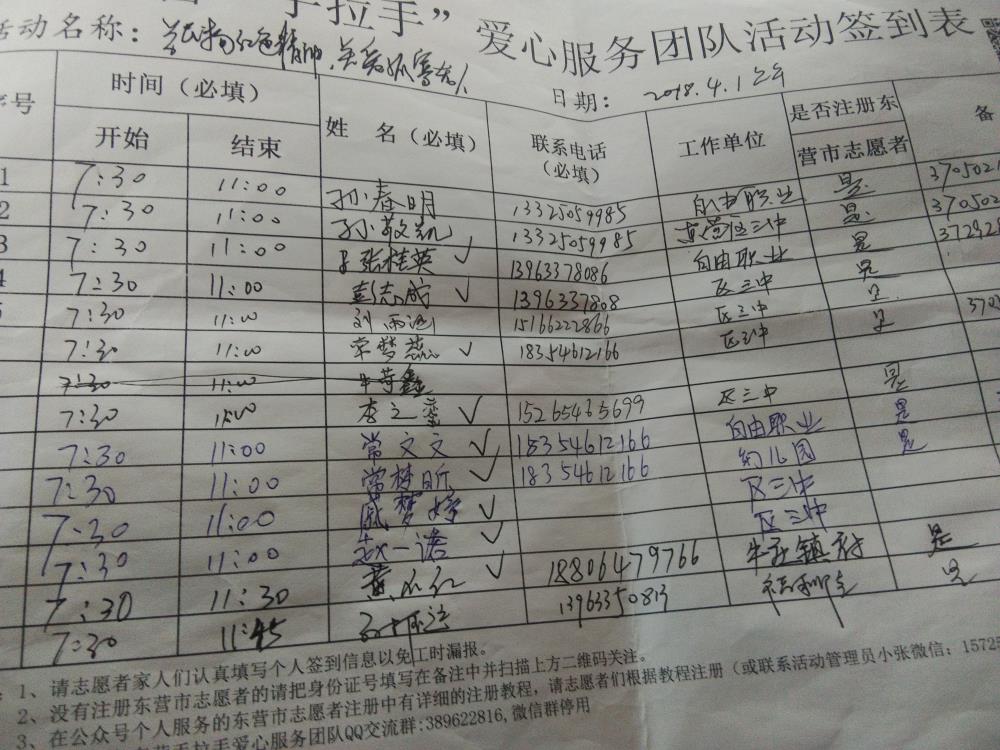 手拉手” 爱心服务团队活动签到表
活动名称: 红色精神,关爱孤寡老人
日期: 2018.4.1
号 时间(必填) 姓 名(必填) 联系电话(必填) 工作单位 是否注册东营市志愿者 备
开始 结束
1 7:30 11:00 孙春明 13325059985 自由职业 是 370502
2 7:30 11:00 孙敬凯 13325059985 东营区三中 是 370502
3 7:30 11:00 张桂英 ✓ 13963378086 自由职业 是
7:30 11:00 彭志成 ✓ 1396337808 区三中 是
7:30 11:00 刘雨涵 15166222866 区三中 是
7:30 11:00 常梦蕊 ✓ 18354612166 区三中 是 370
7:30 11:00
7:30 11:00 李之莹 ✓ 15265435699 区三中 是
7:30 11:00 常文文 ✓ 18354612166 自由职业 是
7:30 11:00 常梦昕 ✓ 18354612166 幼儿园 是
7:30 11:00 戚梦婷 ✓ 区三中
7:30 11:00 赵一诺 ✓ 区三中
7:30 11:30 ✓ 18806479766 牛庄镇 是
7:30 11:45 13963350813 是
1、请志愿者家人们认真填写个人签到信息以免工时漏报。
2、没有注册东营市志愿者的请把身份证号填写在备注中并扫描上方二维码关注。
3、在公众号个人服务的东营市志愿者注册中有详细的注册教程,请志愿者们根据教程注册(或联系活动管理员小张微信:15725
手拉手爱心服务团队QQ交流群:389622816,微信群停用